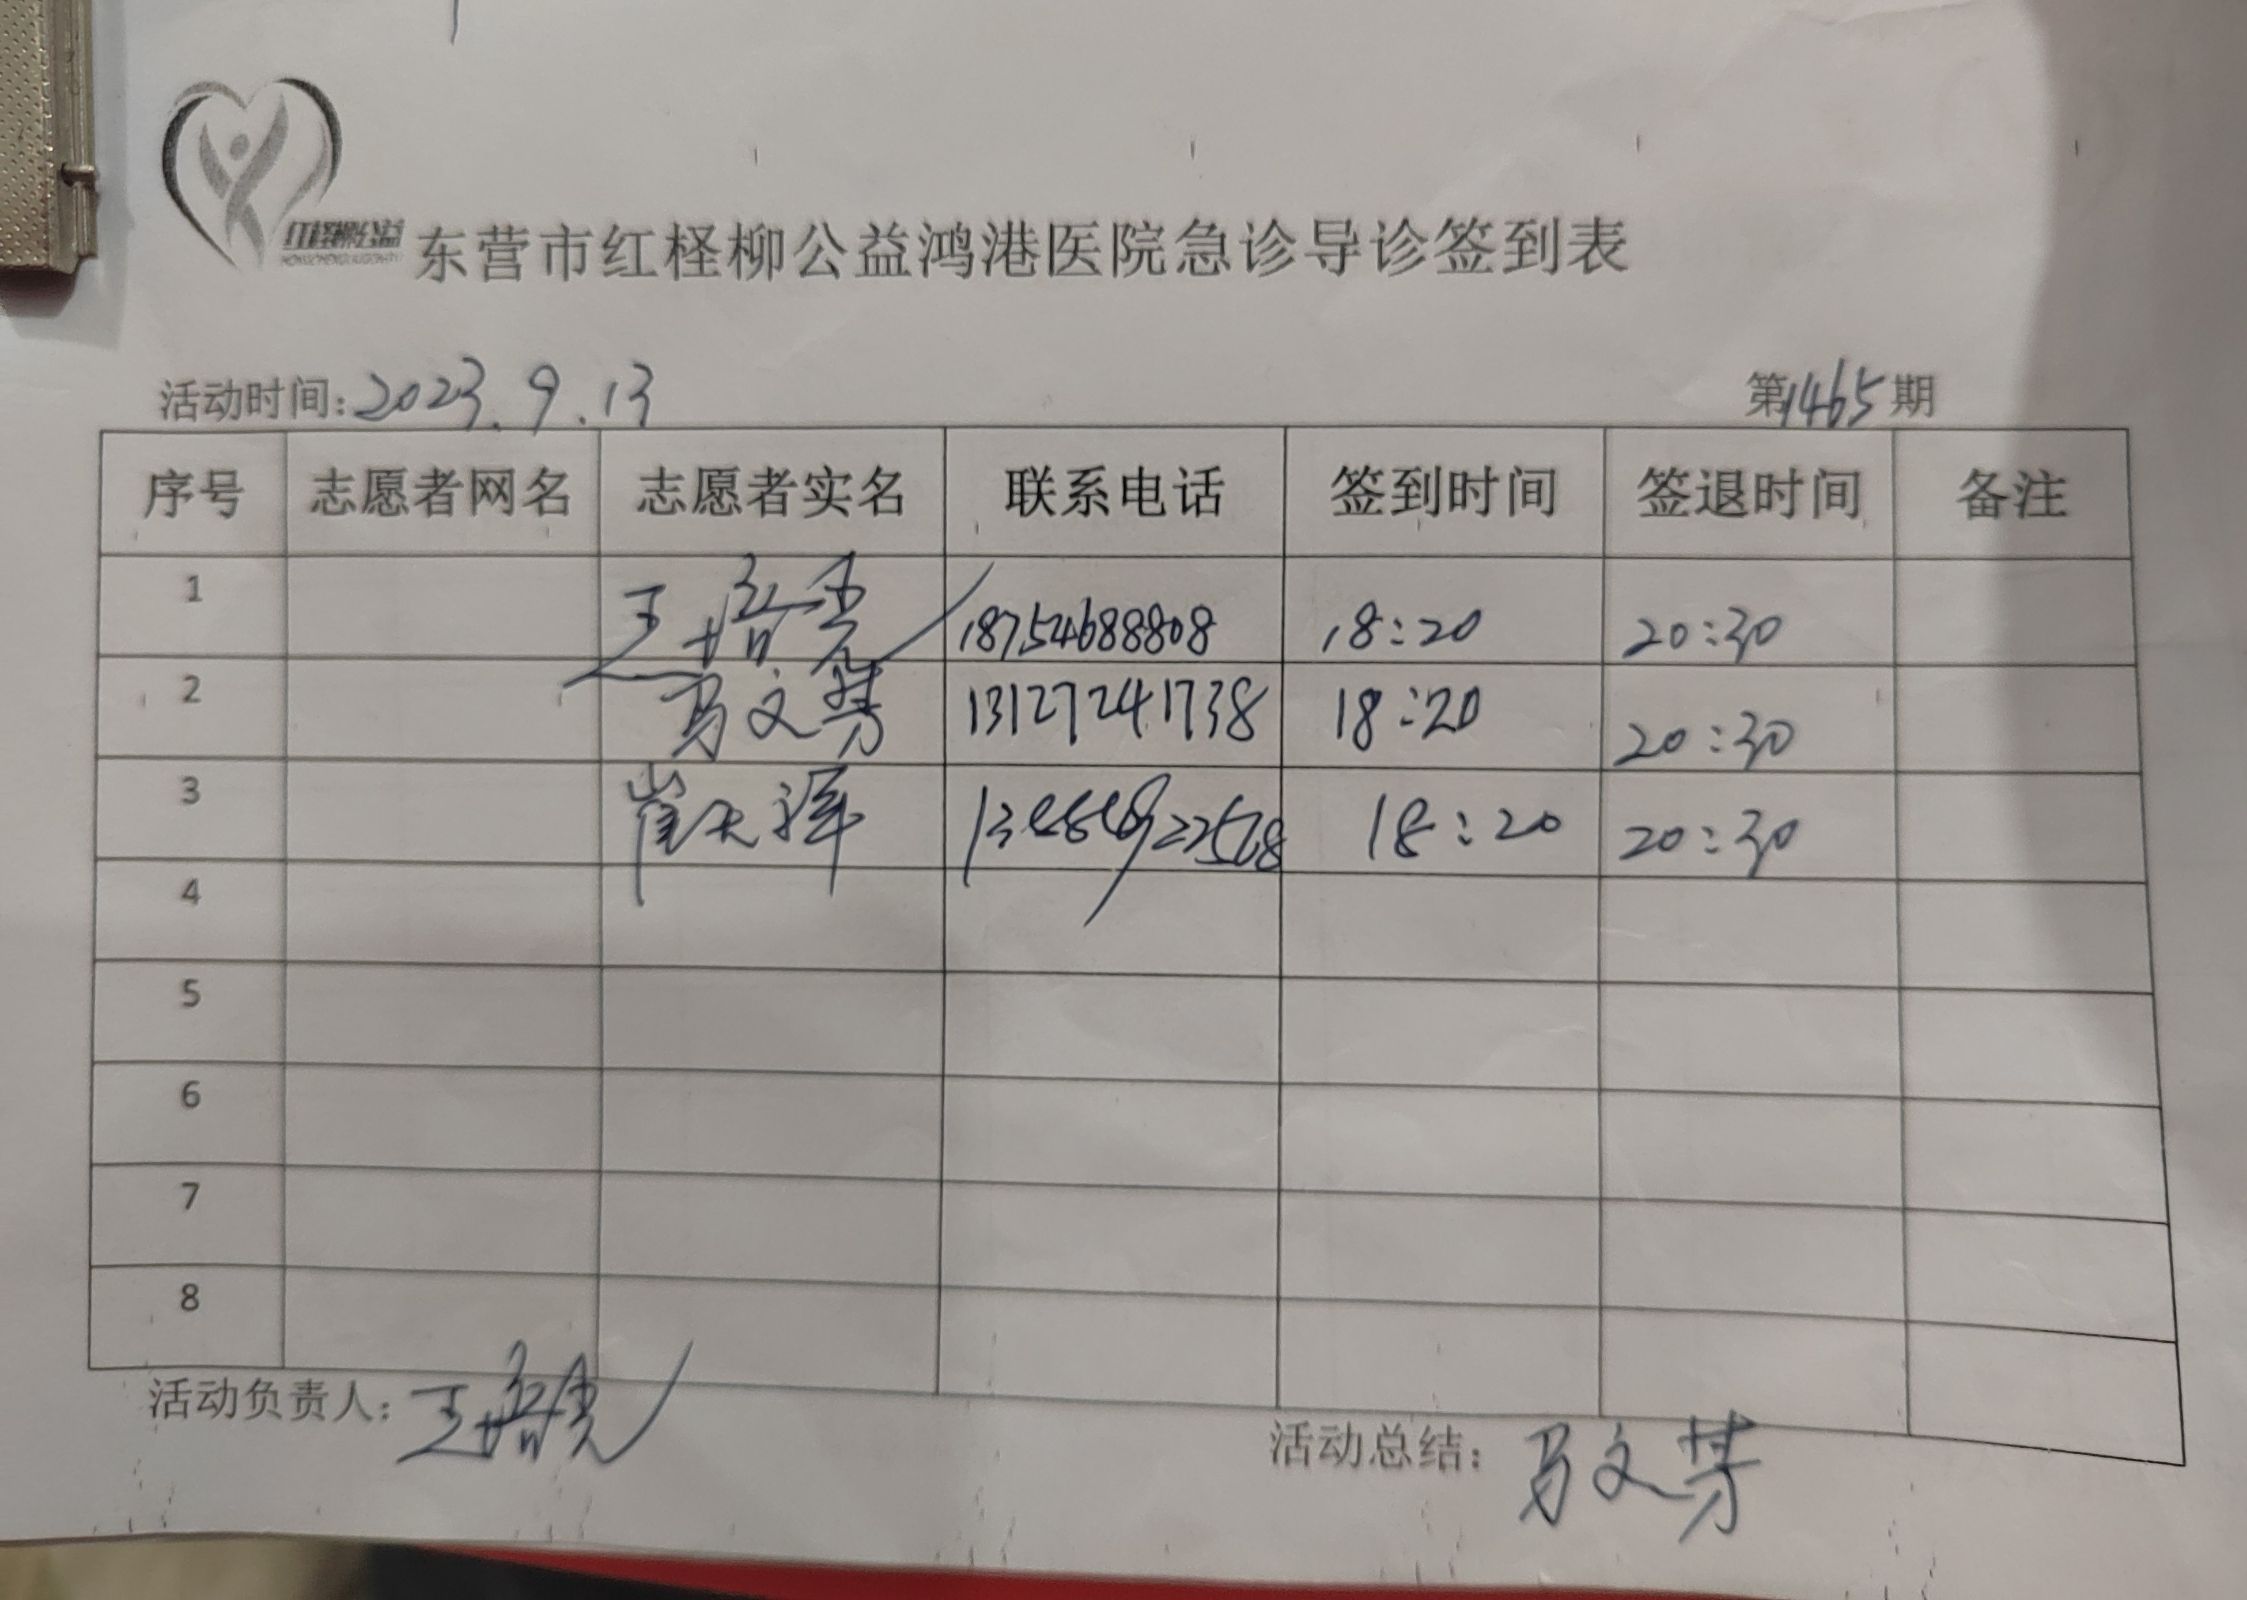 红柽柳公益
东营市红柽柳公益鸿港医院急诊导诊签到表
活动时间：2023.9.13 第1465期
序号 志愿者网名 志愿者实名 联系电话 签到时间 签退时间 备注
1 王培亮 18754688808 18:20 20:30
2 马文芳 13127241738 18:20 20:30
3 崔天祥 18:20 20:30
4
5
6
7
8
活动负责人：王培亮 活动总结：马文芳